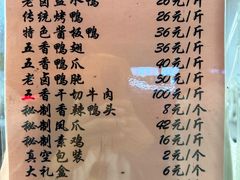 老卤盐水鸭 26元/斤
传统烤鸭 26元/斤
特色酱板鸭 36元/斤
五香鸭翅 36元/斤
五香鸭爪 90元/斤
老卤鸭肫 50元/斤
五香干切牛肉 100元/斤
秘制香辣鸭头 8元/个
秘制凤爪 42元/斤
秘制素鸡 16元/斤
真空包装 2元/个
大礼盒 6元/个